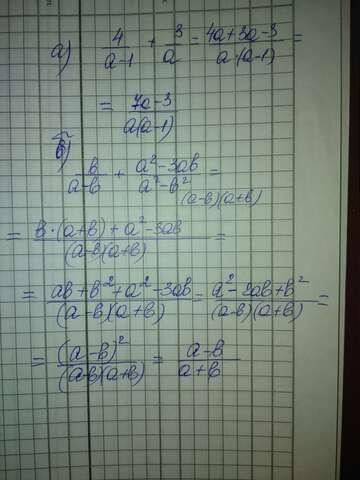 а) 4/(a-1) + 3/a = (4a+3a-3)/(a·(a-1)) =
= (7a-3)/(a(a-1))
б) b/(a-b) + (a²-3ab)/(a²-b²) =
(a-b)(a+b)
= (b·(a+b)+a²-3ab)/((a-b)(a+b)) =
= (ab+b²+a²-3ab)/((a-b)(a+b)) = (a²-2ab+b²)/((a-b)(a+b)) =
= (a-b)²/((a-b)(a+b)) = (a-b)/(a+b)